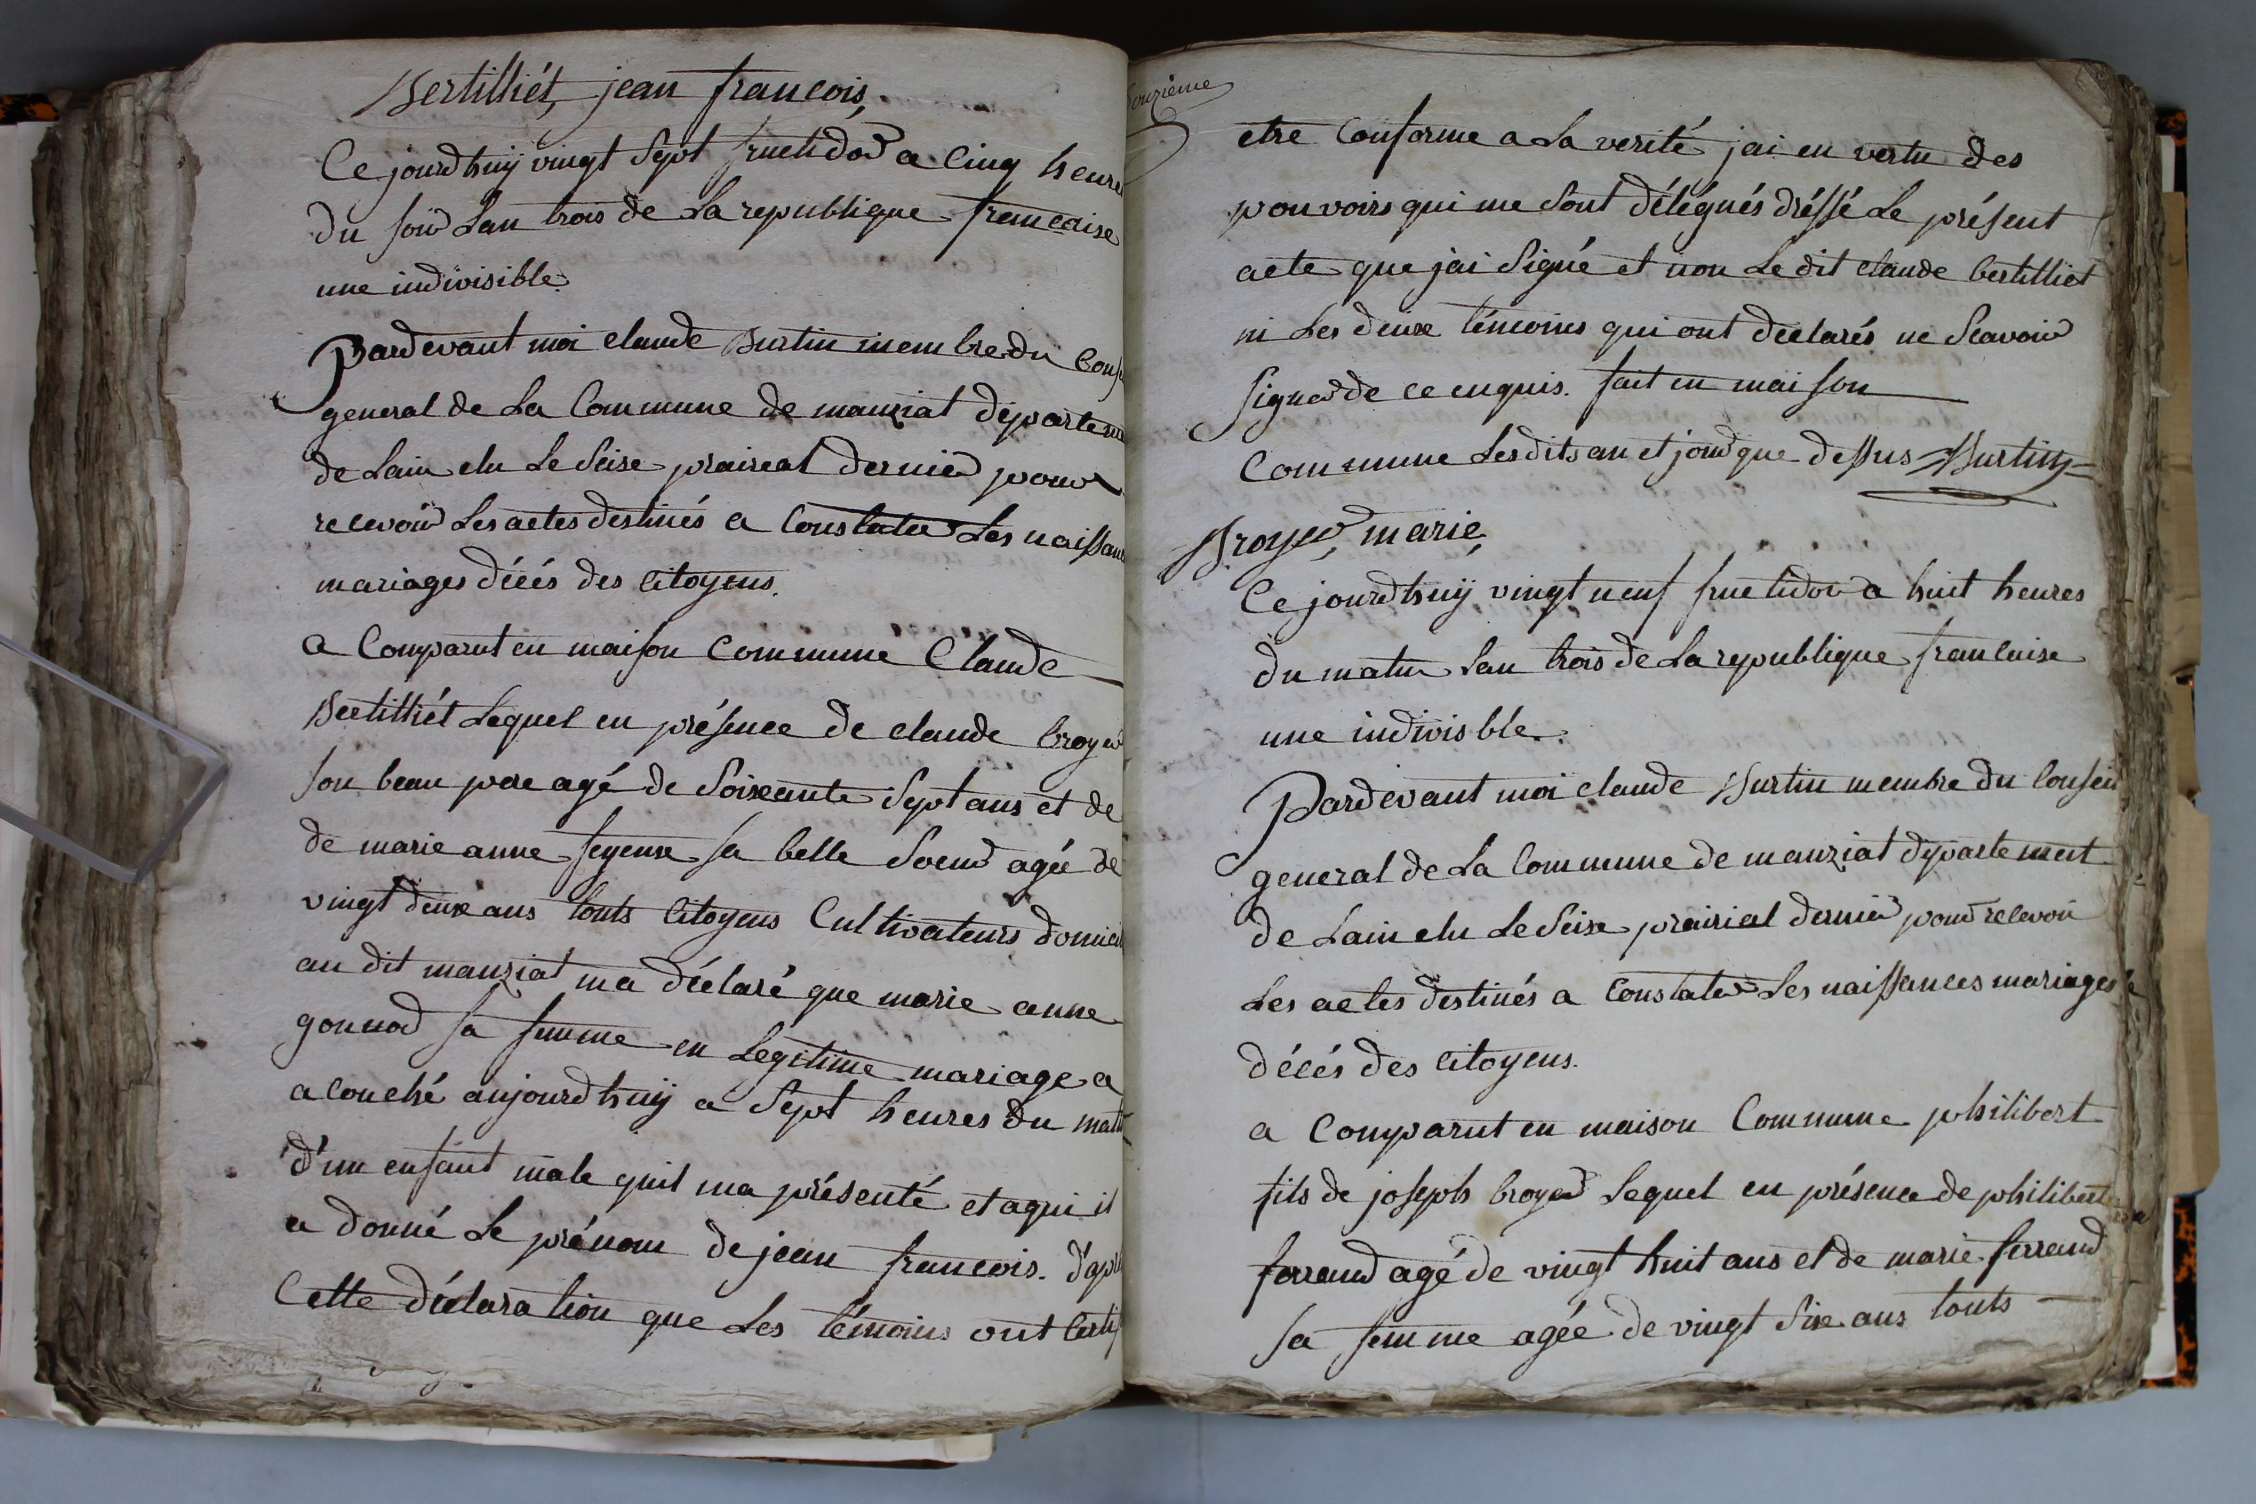 Bertilliét, jean francois,
Ce jourdhuÿ vingt Sept fructidor a Cinq heures
du soir Lan trois de La republique francaise
une indivisible.
Pardevant moi claude Burtin membre du Cons
general de La Commune de manziat départem
de Lain elu Le Seise praireal dernier pour
recevoir Les actes destinés a Constater Les naissan
mariages décés des Citoyens.
a Comparut en maison Commune Claude
Bertilliét Lequel en présence de claude broyer
son beau pere agé de Soixante Sept ans et de
de marie anne feyeux sa belle Soeur agée de
vingt deux ans touts Citoyens Cultivateurs domicil
au dit manziat ma déclaré que marie anne
gonnod sa femme en Legitime mariage a
acouché aujourdhuÿ a Sept heures du mati
d'un enfant male quil ma présenté et aqui il
a donné Le prénom de jean francois. d'aprés
Cette déclaration que Les témoins ont Certif
onzième
etre Conforme a La verité jai en vertu des
pouvoirs qui me Sont délégués dréssé Le présent
acte que jai Signé et non Le dit claude bertilliet
ni Les deux témoins qui ont declarés ne Scavoir
Signer de ce enquis. fait en maison
Commune Lesdits an et jour que dessus Burtin
Broyer, marie,
Ce jourdhuÿ vingt neuf fructidor a huit heures
du matin Lan trois de La republique francaise
une indivisble.
Pardevant moi claude Burtin membre du Conseil
general de La Commune de manziat département
de Lain elu Le Seise prairial dernier pour recevoir
Les actes destinés a Constater Les naissances mariages
décés des Citoyens.
a Comparut en maison Commune philibert
fils de joseph broyer Lequel en présence de philibert
ferrand agé de vingt huit ans et de marie ferrand
sa femme agée de vingt Six ans touts